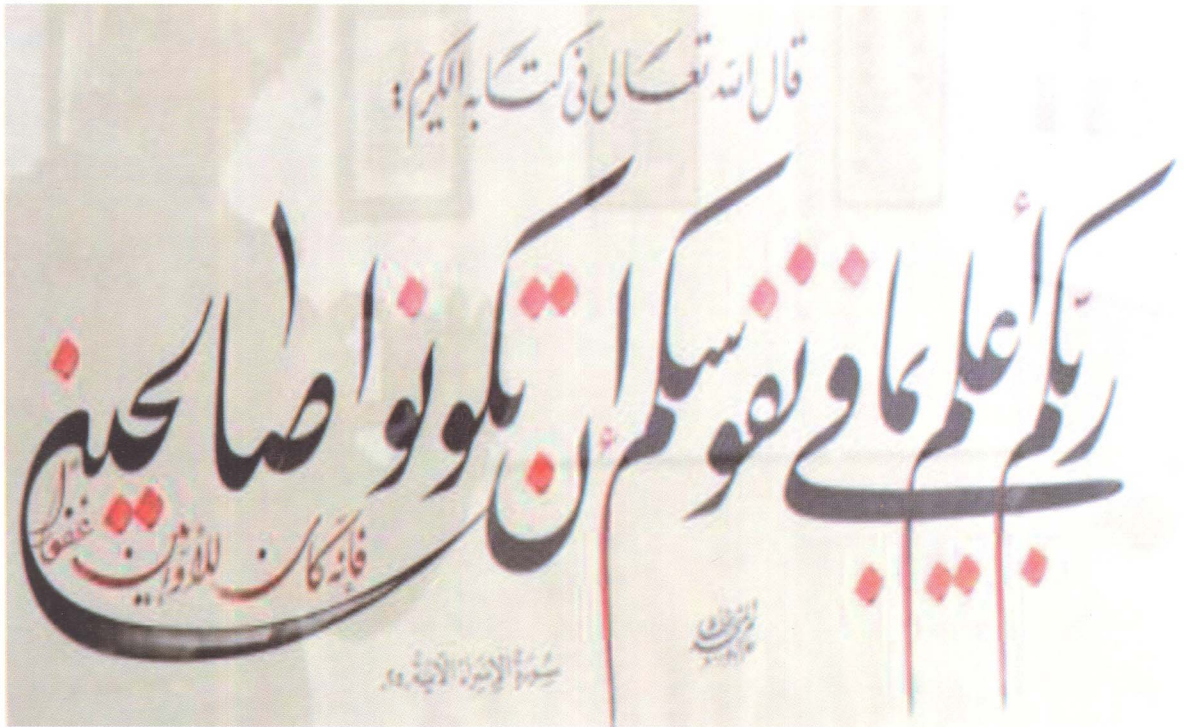 قال الله تعالى في كتابه الكريم :
ربكم أعلم بما في نفوسكم إن تكونوا صالحين
فإنه كان للأوابين غفورا
سورة الإسراء الآية ٢٥